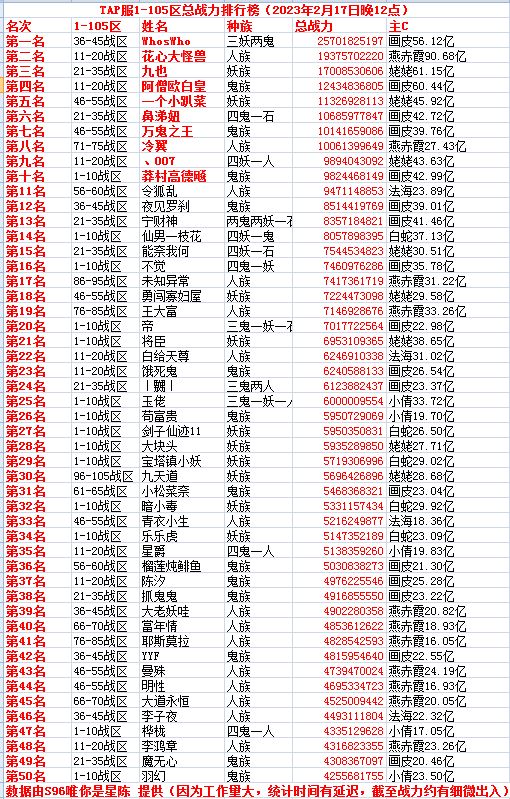 TAP服1-105区总战力排行榜（2023年2月17日晚12点）
名次 1-105区 姓名 种族 总战力 主C
第一名 36-45战区 WhosWho 三妖两鬼 25701825197 画皮56.12亿
第二名 11-20战区 花心大怪兽 人族 19375702220 燕赤霞90.68亿
第三名 21-35战区 九也 妖族 17008530606 姥姥61.15亿
第四名 11-20战区 阿僧欧白皇 鬼族 12434836805 画皮60.44亿
第五名 46-55战区 一个小趴菜 妖族 11326928113 姥姥45.92亿
第六名 21-35战区 鼻涕妞 四鬼一石 10685977847 画皮42.72亿
第七名 46-55战区 万鬼之王 鬼族 10141659086 画皮39.76亿
第八名 71-75战区 冷翼 人族 10061399649 燕赤霞27.43亿
第九名 11-20战区 丶007 四妖一人 9894043092 姥姥43.63亿
第十名 1-10战区 莽村高德飚 鬼族 9824468149 画皮42.99亿
第11名 56-60战区 令狐乱 人族 9471148853 法海23.89亿
第12名 36-45战区 夜见罗刹 鬼族 8514419769 画皮39.01亿
第13名 21-35战区 宁财神 两鬼两妖一石 8357184821 画皮41.46亿
第14名 1-10战区 仙男一枝花 四妖一鬼 8057898395 白蛇37.13亿
第15名 21-35战区 能奈我何 四妖一石 7544534823 姥姥30.51亿
第16名 1-10战区 不觉 四鬼一妖 7460976286 画皮35.78亿
第17名 86-95战区 未知异常 人族 7417361719 燕赤霞31.22亿
第18名 46-55战区 勇闯寡妇屋 妖族 7224473098 姥姥29.58亿
第19名 76-85战区 王大富 人族 7146928676 燕赤霞33.26亿
第20名 1-10战区 帝 三鬼一妖一石 7017722564 画皮22.98亿
第21名 1-10战区 将臣 妖族 6953109365 姥姥38.65亿
第22名 11-20战区 白给天尊 人族 6246910338 法海31.02亿
第23名 11-20战区 饿死鬼 鬼族 6240588133 画皮26.54亿
第24名 21-35战区 丨嬲丨 三鬼两人 6123882437 画皮23.37亿
第25名 1-10战区 玉佬 三鬼一妖一人 6000009554 小倩33.72亿
第26名 1-10战区 苟富贵 鬼族 5950729069 小倩19.70亿
第27名 1-10战区 剑子仙迹11 妖族 5950350831 白蛇26.50亿
第28名 1-10战区 大块头 妖族 5935289850 姥姥27.71亿
第29名 1-10战区 宝塔镇小妖 妖族 5719306996 白蛇29.02亿
第30名 96-105战区 九天道 妖族 5696426896 姥姥28.68亿
第31名 61-65战区 小松菜奈 鬼族 5468368321 画皮23.04亿
第32名 1-10战区 暗小毒 妖族 5331157434 白蛇29.92亿
第33名 46-55战区 青衣小生 人族 5216249877 法海18.36亿
第34名 1-10战区 乐乐虎 妖族 5147352189 白蛇23.09亿
第35名 11-20战区 星爵 四鬼一人 5138359260 小倩19.83亿
第36名 56-60战区 榴莲炖鲱鱼 鬼族 5030838273 画皮21.30亿
第37名 11-20战区 陈汐 鬼族 4976225546 画皮25.28亿
第38名 21-35战区 抓鬼鬼 鬼族 4916855550 画皮23.22亿
第39名 36-45战区 大老妖哇 人族 4902280358 燕赤霞20.82亿
第40名 66-70战区 當年情 人族 4853612622 燕赤霞18.93亿
第41名 76-85战区 耶斯莫拉 人族 4828542593 燕赤霞16.05亿
第42名 36-45战区 YYF 鬼族 4815954640 画皮22.55亿
第43名 46-55战区 曼殊 人族 4739470024 燕赤霞24.19亿
第44名 46-55战区 明性 人族 4695334723 燕赤霞16.93亿
第45名 66-70战区 大道永恒 人族 4525009442 燕赤霞20.05亿
第46名 36-45战区 李子夜 人族 4493111804 法海22.32亿
第47名 1-10战区 桦栊 四鬼一人 4335129628 小倩17.05亿
第48名 11-20战区 李鸿章 人族 4316823355 燕赤霞23.26亿
第49名 21-35战区 魔无心 鬼族 4308367097 画皮20.46亿
第50名 1-10战区 羽幻 鬼族 4255681755 小倩23.50亿
数据由S96唯你是星陈 提供（因为工作里大，统计时间有延迟，截至战力约有细微出入）